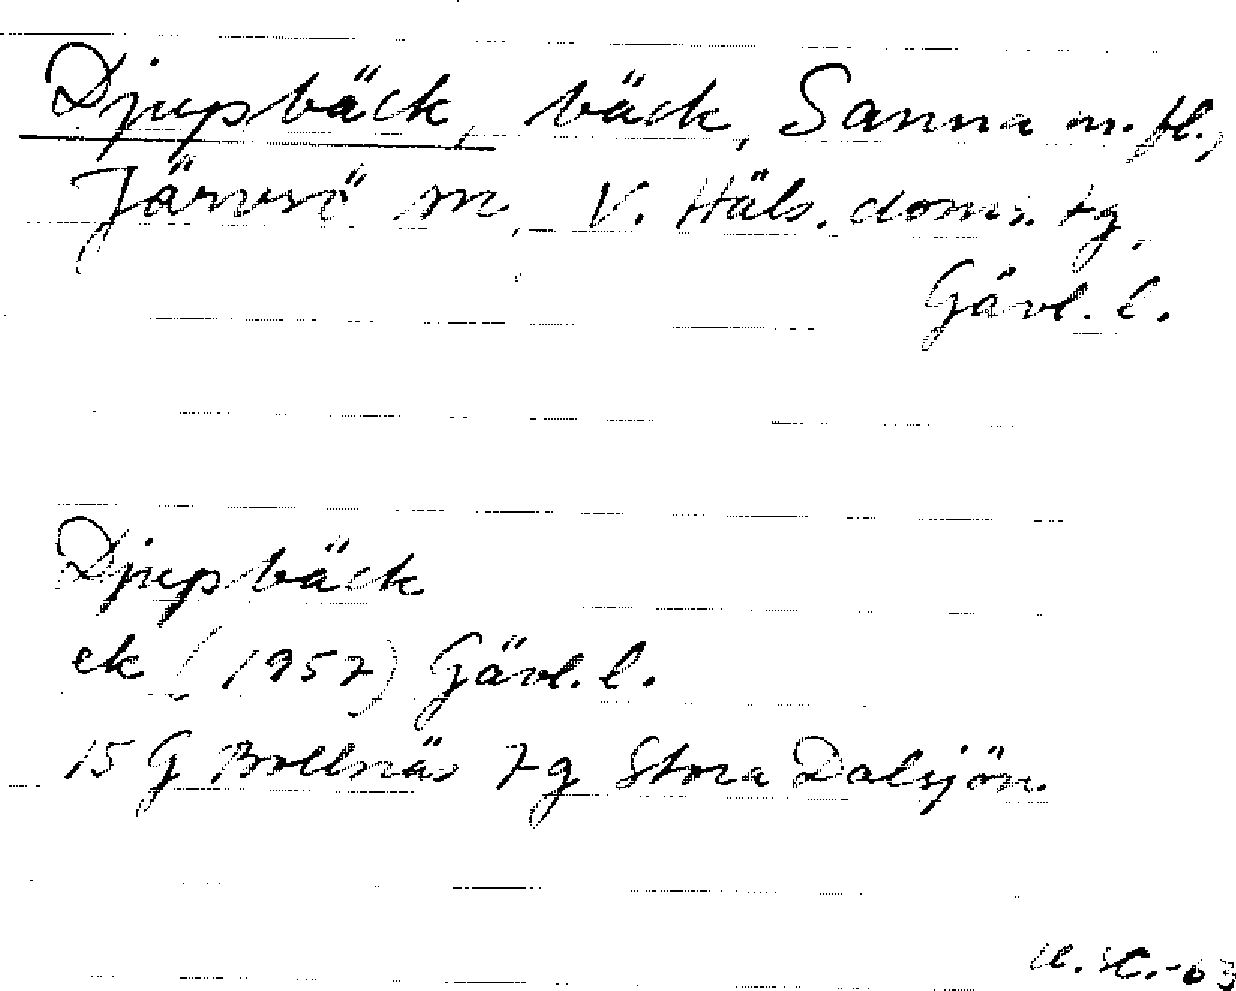 Djupbäck, bäck, Sanna m. fl.,
Järvsö sn, V. Häls. doms. tg,
Gävl. l.
Djupbäck
ek (1957) Gävl. l.
15 G Bollnäs 7g Stora Dalsjön.
-63